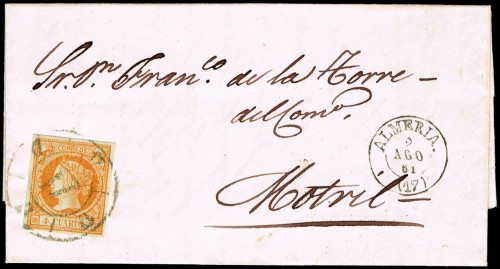 Sr. Dn. Fran.co de la Torre -
del Com.o
Motril -
ALMERIA.
2
AGO
61
(17)
CORREOS
4 CUARTOS